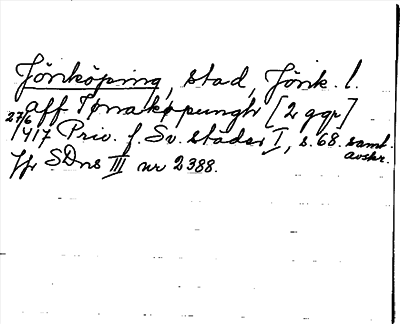 Jönköping, stad, Jönk. l.
aff Iønakøpungh [2 ggr]
27/6 1417 Priv. f. Sv. städer I, s. 68. samt. avskr.
Jfr SDns III nr 2388.